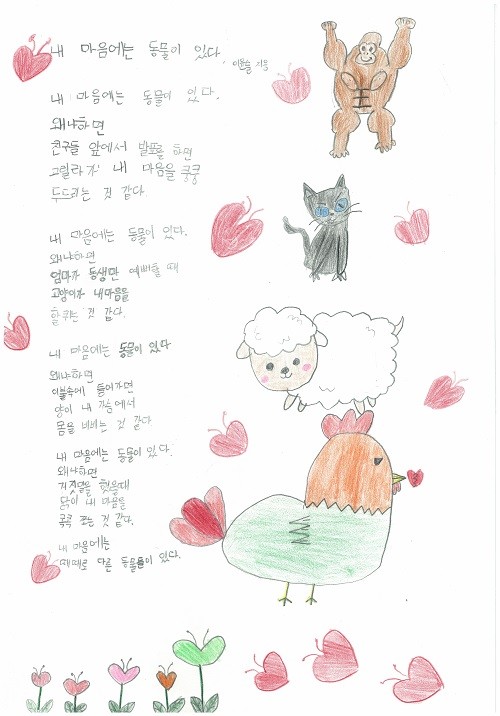 내 마음에는 동물이 있다.
지음
내 마음에는 동물이 있다.
왜냐하면
친구들 앞에서 발표를 하면
고릴라가 내 마음을 쿵쿵
두드리는 것 같다.
내 마음에는 동물이 있다.
왜냐하면
엄마가 동생만 예뻐할 때
고양이가 내마음을
할퀴는 것 같다.
내 마음에는 동물이 있다
왜냐하면
이불속에 들어가면
양이 내 가슴에서
몸을 비비는 것 같다
내 마음에는 동물이 있다.
왜냐하면
거짓말을 했을때
닭이 내 마음을
콕콕 쪼는 것 같다.
내 마음에는
때때로 다른 동물들이 있다.